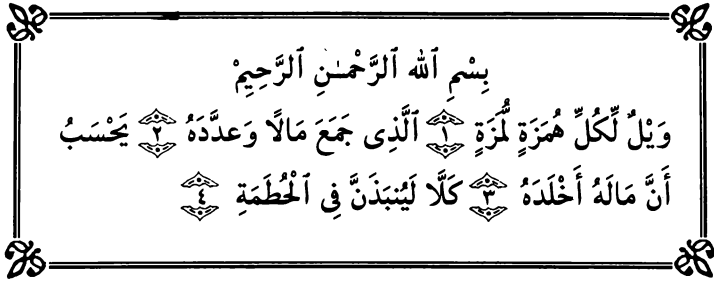 بِسْمِ ٱللهِ ٱلرَّحْمَـٰنِ ٱلرَّحِيمْ
وَيْلٌ لِّكُلِّ هُمَزَةٍ لُّمَزَةٍ ١ ٱلَّذِى جَمَعَ مَالًا وَعدَّدَهُ ٢ يَحْسَبُ
أَنَّ مَالَهُ أَخْلَدَهُ ٣ كَلَّا لَيُنبَذَنَّ فِى ٱلْحُطَمَةِ ٤